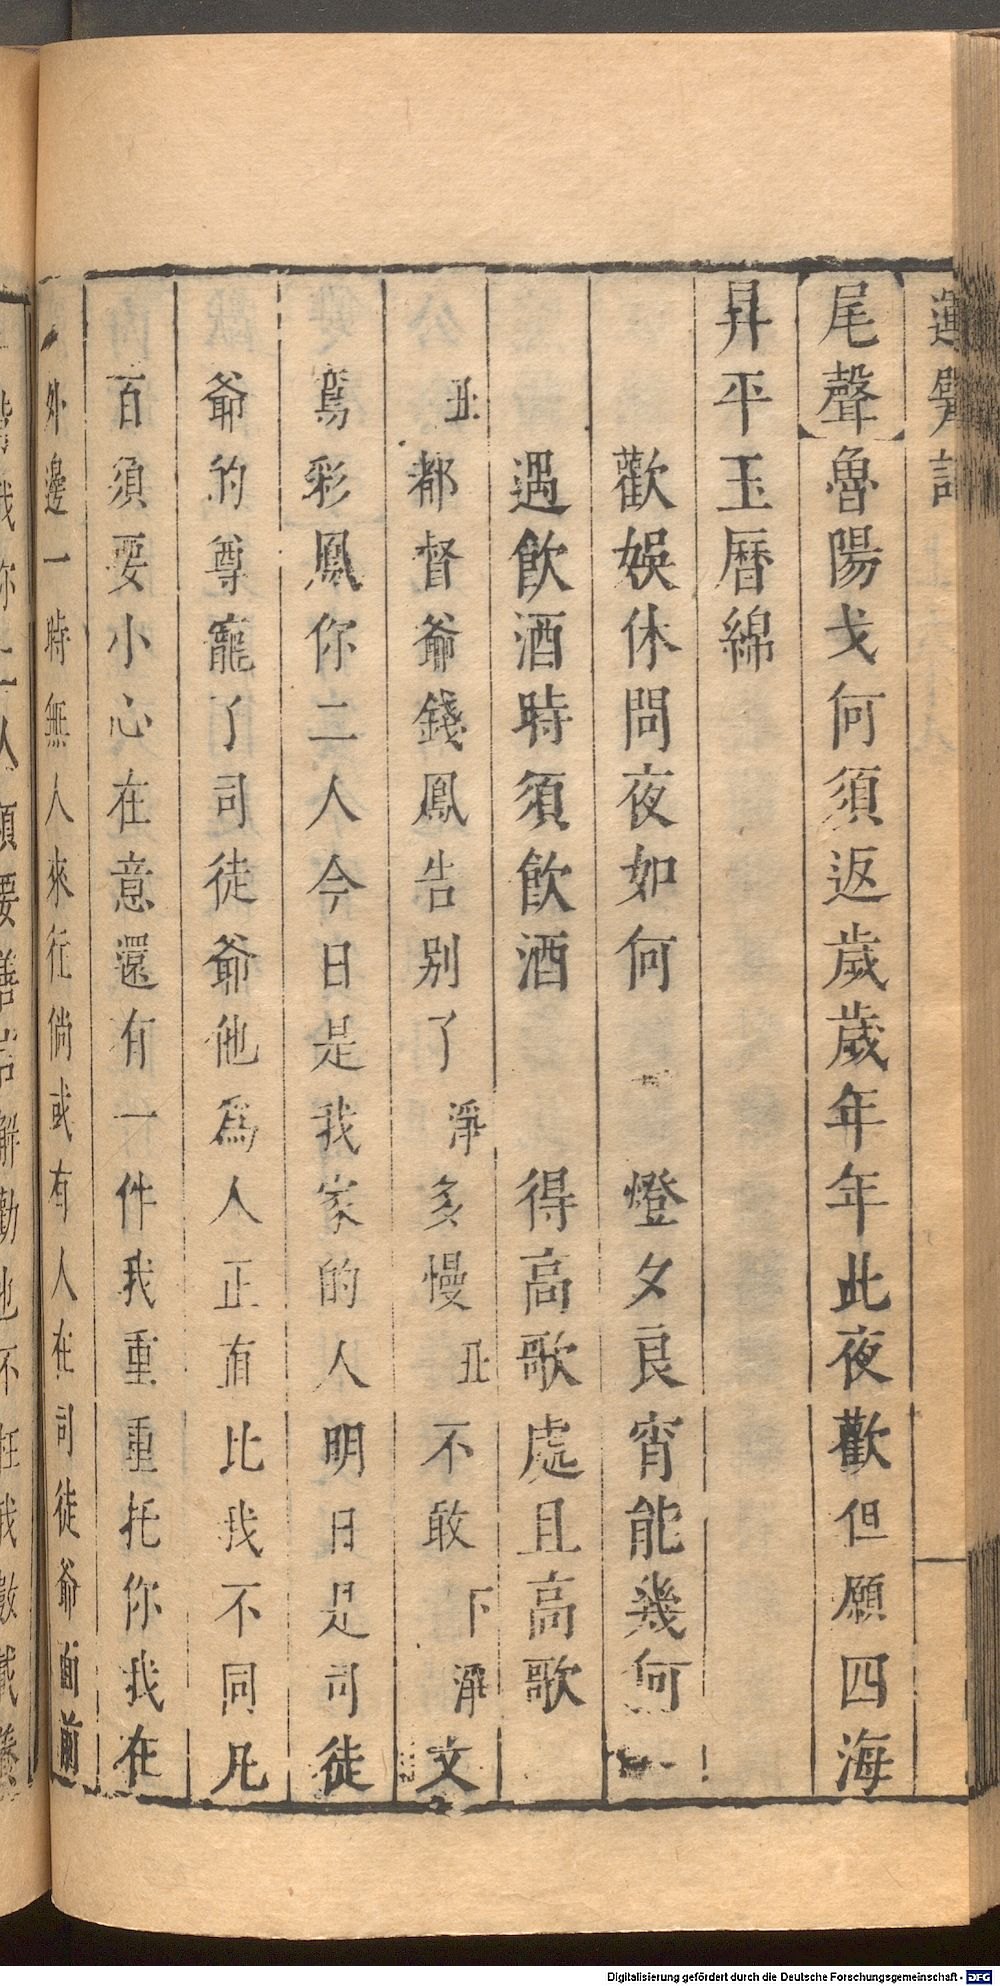 運甓記
尾聲魯陽戈何須返歲歲年年此夜歡但願四海
昇平玉曆綿
歡娛休問夜如何　燈夕良宵能幾何
遇飲酒時須飲酒　得高歌處且高歌
丑都督爺錢鳳告別了淨多慢丑不敢下淨文
鴛彩鳳你二人今日是我家的人明日是司徒
爺的尊寵了司徒爺他為人正直比我不同凡
百須要小心在意還有一件我重重托你我在
外邊一時無人來往倘或有人在司徒爺面前
Digitalisierung gefördert durch die Deutsche Forschungsgemeinschaft - DFG